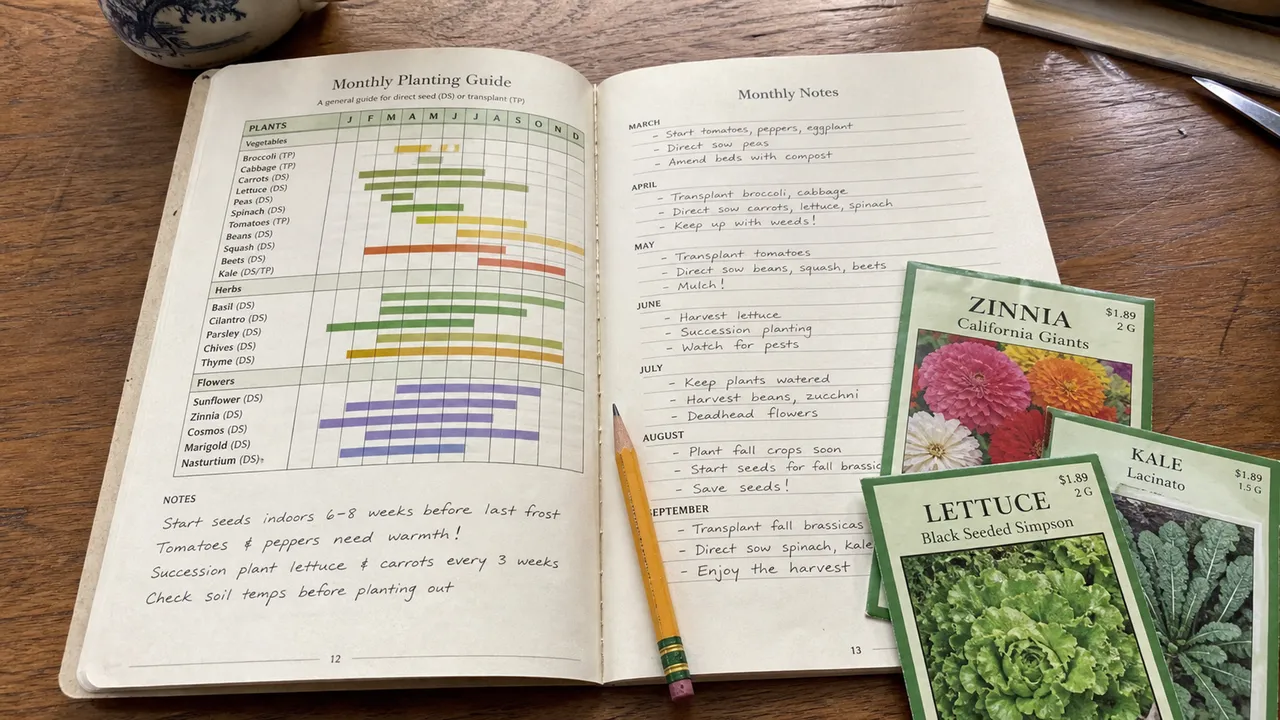 Monthly Planting Guide
A general guide for direct seed (DS) or transplant (TP)
PLANTS J F M A M J J A S O N D
Vegetables
Broccoli (TP)
Cabbage (TP)
Carrots (DS)
Lettuce (DS)
Peas (DS)
Spinach (DS)
Tomatoes (TP)
Beans (DS)
Squash (DS)
Beets (DS)
Kale (DS/TP)
Herbs
Basil (DS)
Cilantro (DS)
Parsley (DS)
Chives (DS)
Thyme (DS)
Flowers
Sunflower (DS)
Zinnia (DS)
Cosmos (DS)
Marigold (DS)
Nasturtium (DS)
NOTES
Start seeds indoors 6-8 weeks before last frost
Tomatoes & peppers need warmth!
Succession plant lettuce & carrots every 3 weeks
Check soil temps before planting out
12
Monthly Notes
MARCH
- Start tomatoes, peppers, eggplant
- Direct sow peas
- Amend beds with compost
APRIL
- Transplant broccoli, cabbage
- Direct sow carrots, lettuce, spinach
- Keep up with weeds!
MAY
- Transplant tomatoes
- Direct sow beans, squash, beets
- Mulch!
JUNE
- Harvest lettuce
- Succession planting
- Watch for pests
JULY
- Keep plants watered
- Harvest beans, zucchni
- Deadhead flowers
AUGUST
- Plant fall crops soon
- Start seeds for fall brassic
- Save seeds!
SEPTEMBER
- Transplant fall brassicas
- Direct sow spinach, kale
- Enjoy the harvest
13
ZINNIA
California Giants
$1.89
2 G
KALE
Lacinato
$1.89
1.5 G
LETTUCE
Black Seeded Simpson
$1.89
2 G